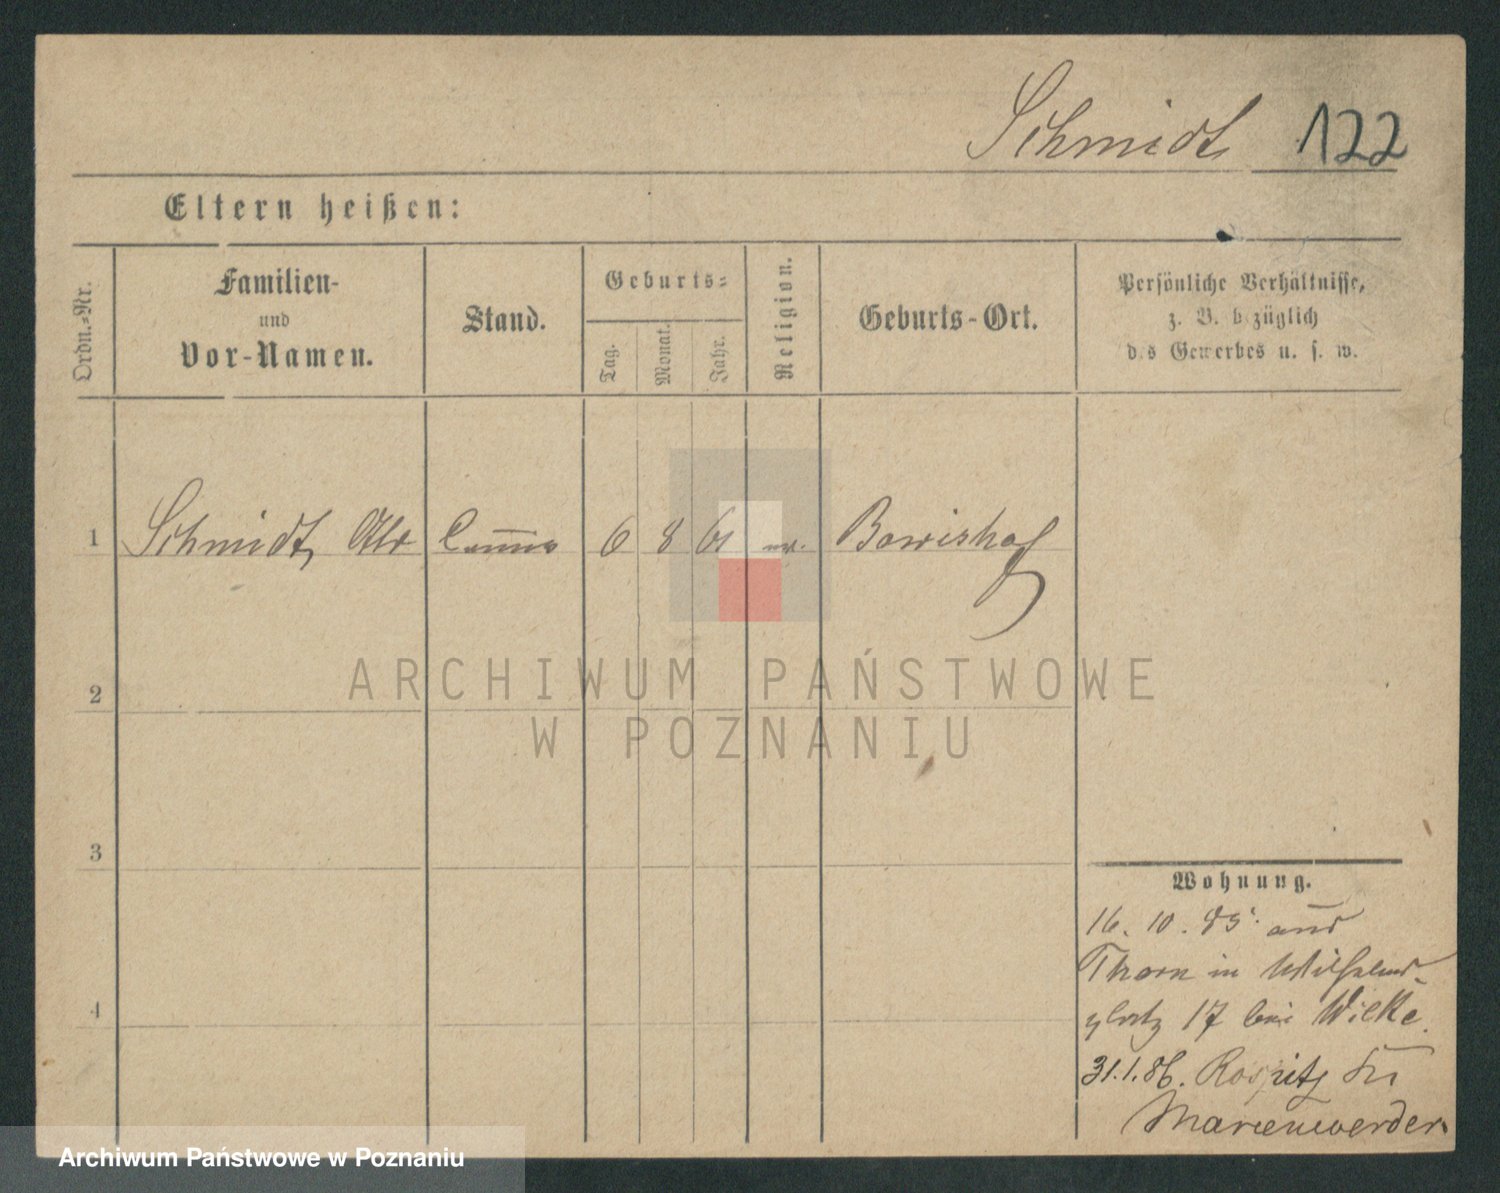 Schmidt 122
Eltern heißen:
Ordn.-Nr.
Familien-
und
Vor-Namen.
Stand.
Geburts-
Tag.
Monat.
Jahr.
Religion.
Geburts-Ort.
Persönliche Verhältnisse,
z. B. bezüglich
des Gewerbes u. s. w.
1 Schmidt, 6 8 61
2
3
4
ARCHIWUM PAŃSTWOWE
W POZNANIU
Wohnung.
16. 10. 85. aus
Thorn in Wilhelms-
platz 17 bei Wilke.
31.1.86. Rospitz Kr
Marienwerder
Archiwum Państwowe w Poznaniu